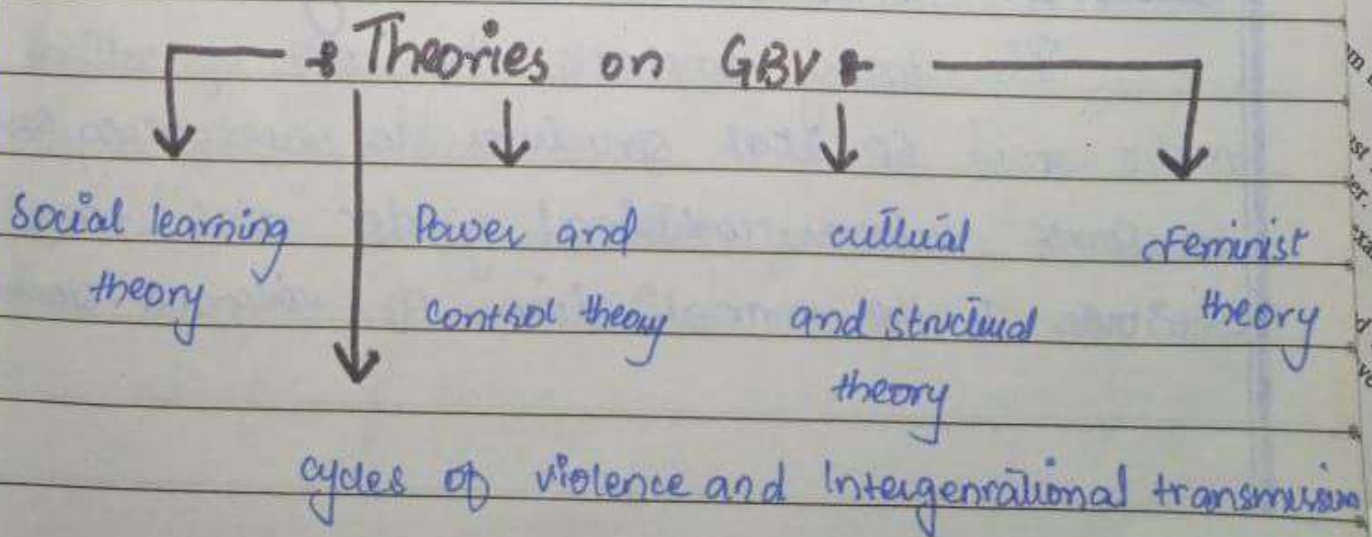 Theories on GBV
Social learning theory
Power and control theory
cultural and structural theory
Feminist theory
cycles of violence and Intergenrational transmission